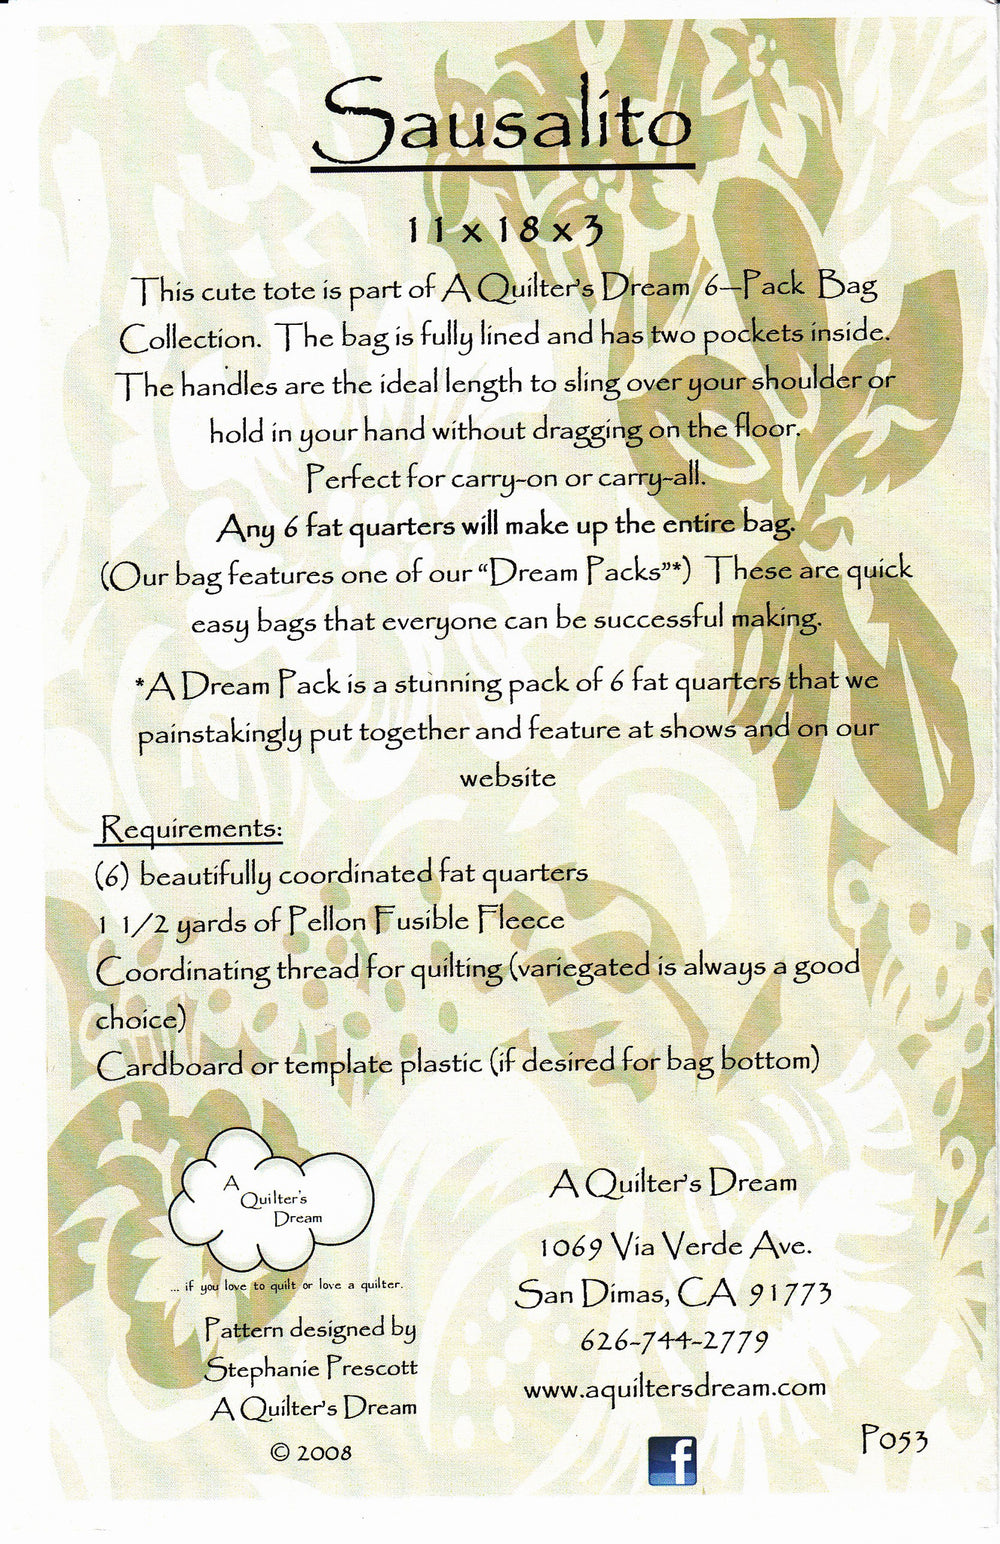 Sausalito
11 x 18 x 3
This cute tote is part of A Quilter's Dream 6–Pack Bag
Collection. The bag is fully lined and has two pockets inside.
The handles are the ideal length to sling over your shoulder or
hold in your hand without dragging on the floor.
Perfect for carry-on or carry-all.
Any 6 fat quarters will make up the entire bag.
(Our bag features one of our “Dream Packs”*) These are quick
easy bags that everyone can be successful making.
*A Dream Pack is a stunning pack of 6 fat quarters that we
painstakingly put together and feature at shows and on our
website
Requirements:
(6) beautifully coordinated fat quarters
1 1/2 yards of Pellon Fusible Fleece
Coordinating thread for quilting (variegated is always a good
choice)
Cardboard or template plastic (if desired for bag bottom)
A
Quilter's
Dream
... if you love to quilt or love a quilter.
Pattern designed by
Stephanie Prescott
A Quilter's Dream
© 2008
A Quilter's Dream
1069 Via Verde Ave.
San Dimas, CA 91773
626-744-2779
www.aquiltersdream.com
f
P053